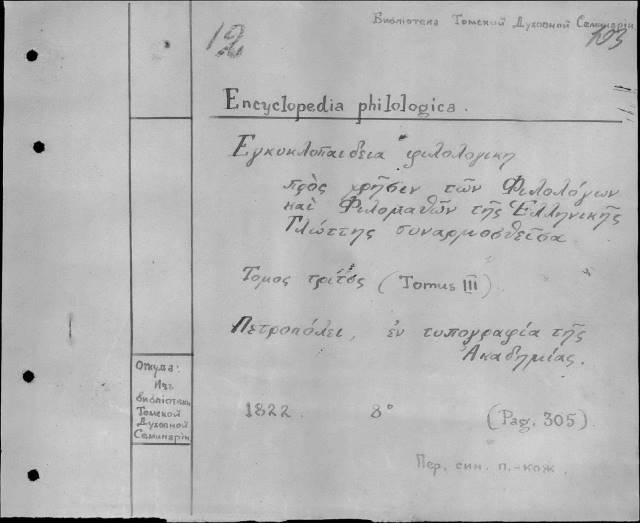 Библіотека Томской Духовной Семинаріи
12
Encyclopedia philologica.
Εγκυκλοπαιδεια φιλολογικη
πρὸς χρῆσιν τῶν Φιλολόγων
καὶ Φιλομαθῶν τῆς Ἑλληνικῆς
Γλώττης συναρμοσθεῖσα
Τομος τρίτος (Tomus III)
Πετροπόλει, ἐν τυπογραφία τῆς
Ἀκαδημίας.
Откуда:
Изъ
библіотеки
Томской
Духовной
Семинаріи
1822. 8° (Pag. 305)
Пер. син. п.-кож.